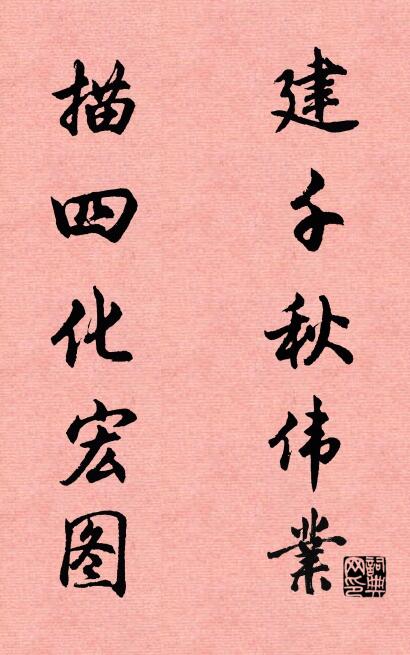 建千秋伟业
描四化宏图
詞典
网印